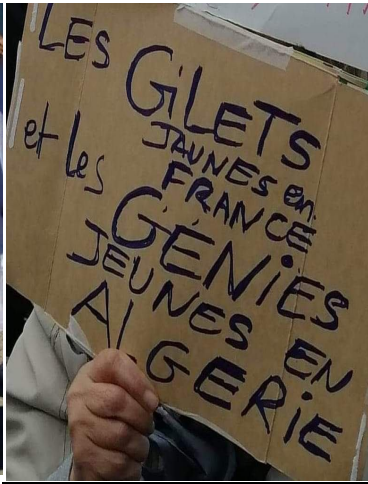 LES
GiLETS
JAUNES en
FRANCE
et les
GÉNiES
JEUNES EN
ALGERiE